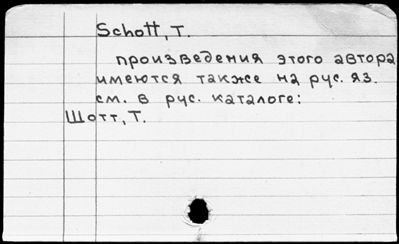 Schott, T.
произведения этого автора
имеются также на рус. яз.
см. в рус. каталоге:
Шотт, Т.